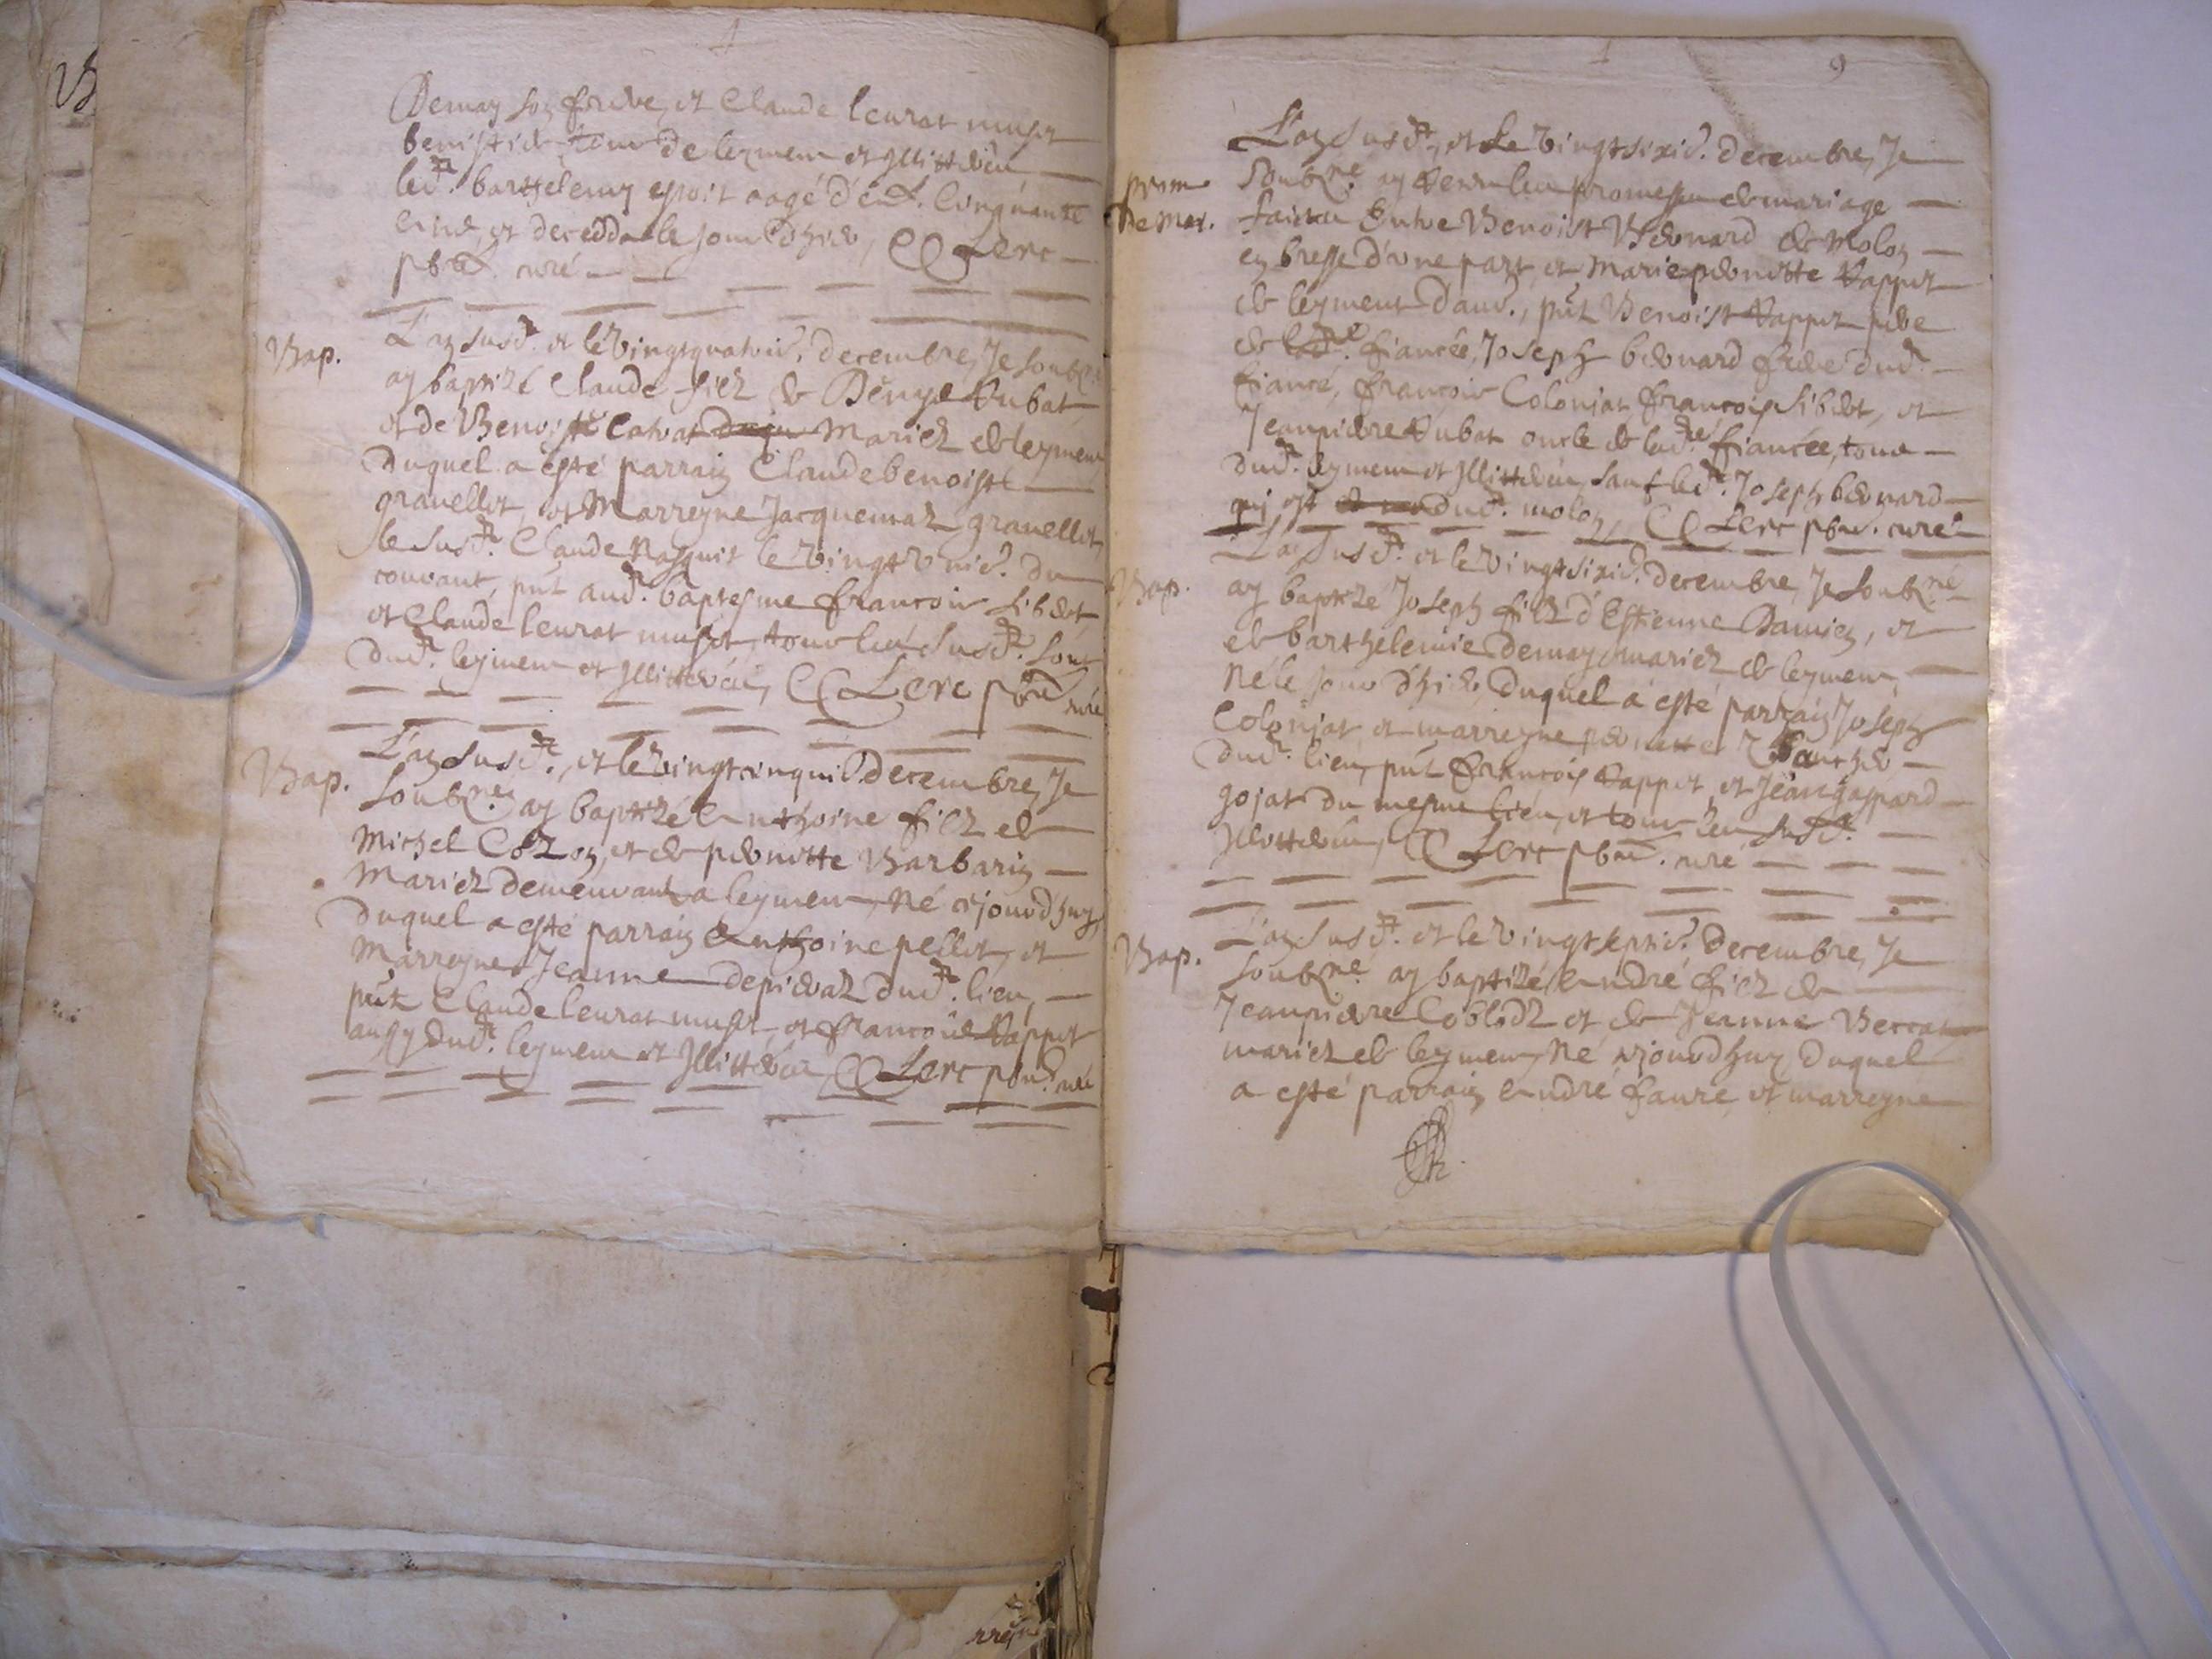 Demay son frere, et Claude leurat musit
benistier tous de leymen et Illitterés
led.t barthelemy estoit aagé d'env. Cinquante
Cinq, et deceddale jour d'hier, CLerc
pbre. curé
Bap.
L'an susd. et le vingtquatries. decembre, Je soubz.né
ay baptizé Claude filz de Denys Rubat
et de Benoiste Catrat mariez de leymen
duquel a esté parrain Claude benoist
gravellot, et Marreyne Jacquemaz gravellot
le susd.t Claude Nasquit le vingt unie. du
courant, pñt aud.t baptesme francois sibert
et Claude leurat musit, tous les susd.t sont
dud.t leymen et Illitterés, CLerc pbre curé
Bap.
L'an susd.t, et le vingtcinquie. decembre, Je
soubz.né ay baptizé Anthoine filz de
Michel Cozon, et de pernette Barbarin
Mariez demeurant a leymen, Né cejourdhuy
duquel a esté parrain Anthoine pellot, et
Marreyne Jeanne depieraz dud.t lieu,
pñtz Claude leurat musit, et francois Rappet
aussy dud.t leymen et Illitterés, CLerc pbre. curé
9
prom
De Mar.
L'an susd.t, et Le vingtsixie. decembre, Je
soubz.né ay Receu les promesses de mariage
faictes Entre Benoist Bernard de Molon
en bresse d'une part, et Marie pernette Rappet
de leyment d'au., pñt Benoist Rappet pere
de lad.te fiancée, Joseph bernard frere dud.t
fiancé, francois Colonjat francois sibert, et
Jeanpierre Rubat oncle de lad.te fiancée, tous
dud.t leymen et Illitterés, sauf led.t Joseph bernard
qui est dud.t molon, CLerc pbre. curé
Bap.
L'an susd.t et le vingtsixie. decembre, Je soubz.né
ay baptizé Joseph filz d'Estienne Damien, et
de barthelemie Demay mariez de leymen,
Né le jour d'hier, duquel a esté parrain Joseph
Colonjat, et marreyne pernette
dud.t lieu, pñt francois Rappet, et Jean gaspard
gojat du mesme lieu, et tous les susd.t
Illitterés, CLerc pbre. curé
Bap.
L'an susd.t et le vingt septie. decembre, Je
soubz.né ay baptizé Andre filz de
Jeanpierre Coblodz et de Jeanne Berrat
mariez de leymen, Né cejourdhuy duquel
a esté parrain Andre faure, et marreyne